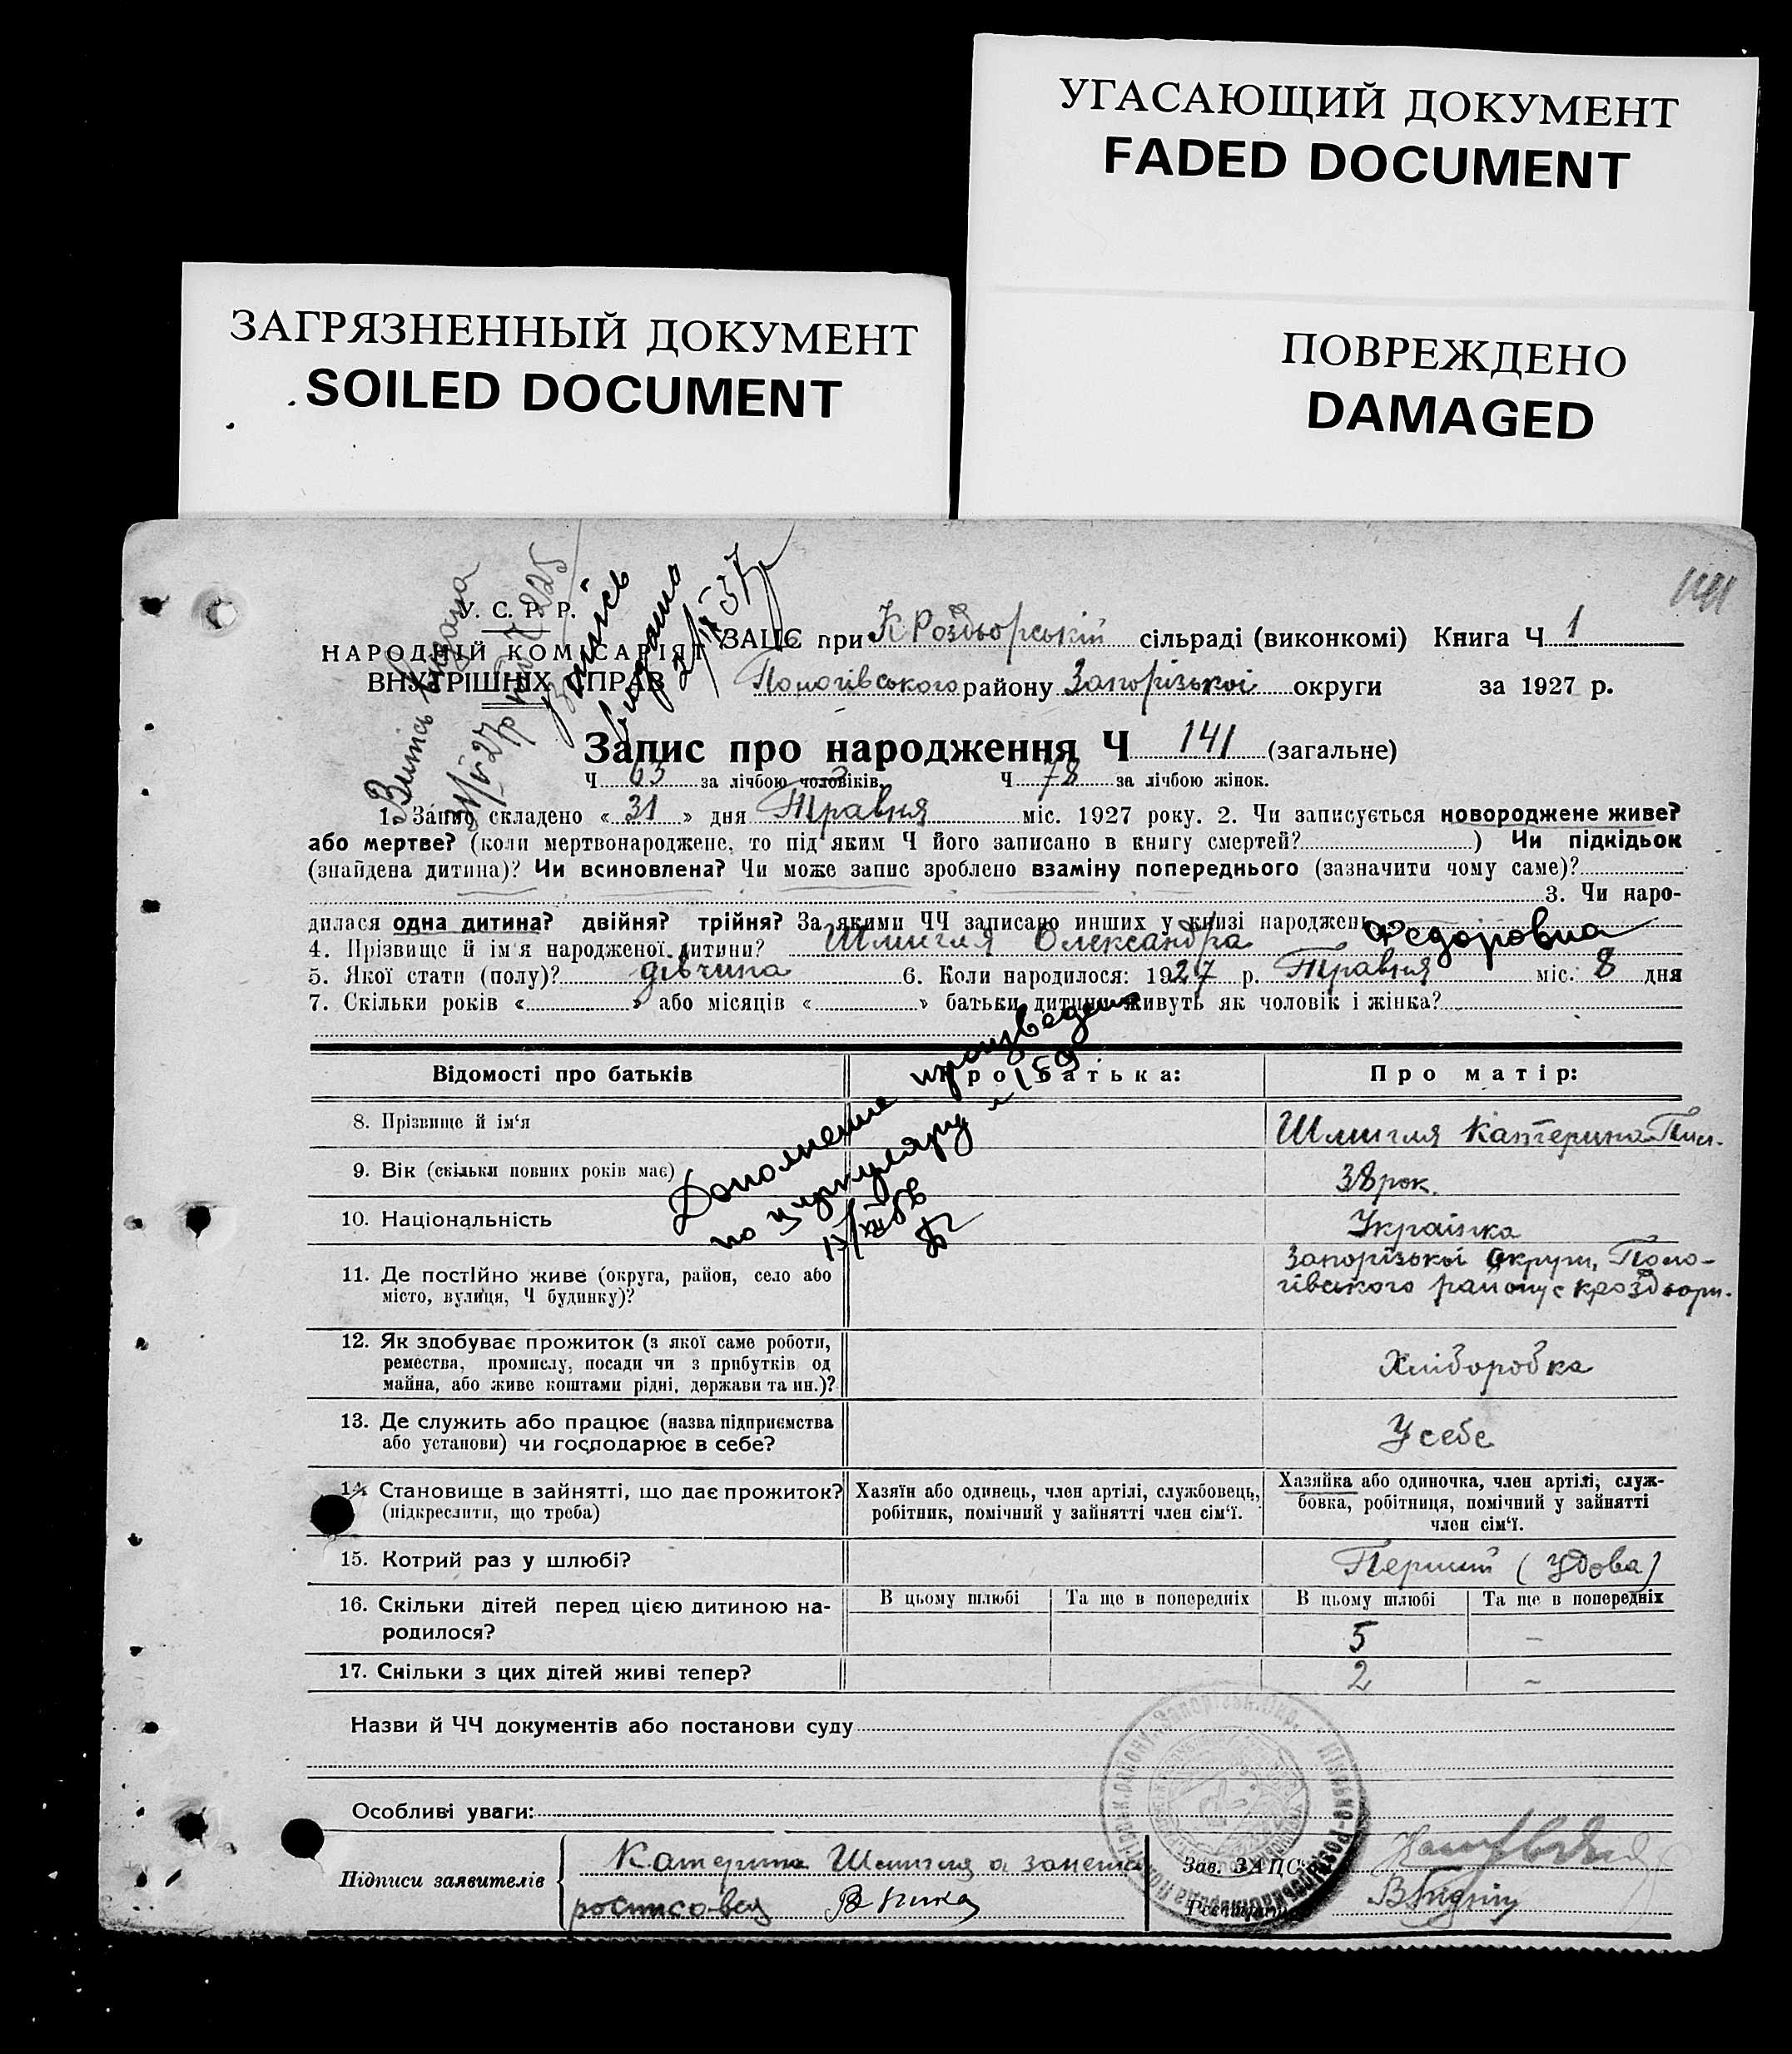 УГАСАЮЩИЙ ДОКУМЕНТ
FADED DOCUMENT
ЗАГРЯЗНЕННЫЙ ДОКУМЕНТ
SOILED DOCUMENT
ПОВРЕЖДЕНО
DAMAGED
141
У. С. Р. Р.
НАРОДНІЙ КОМІСАРІЯТ
ВНУТРІШНІХ СПРАВ
Випись видана
Випись
видано
ЗАЦС при К Роздорській сільраді (виконкомі) Книга Ч 1
Пологівського району Запорізької округи за 1927 р.
Запис про народження Ч 141 (загальне)
Ч 63 за лічбою чоловіків. Ч 78 за лічбою жінок.
1. Запис складено « 31 » дня Травня міс. 1927 року. 2. Чи записується новороджене живе?
або мертве? (коли мертвонароджене, то під яким Ч його записано в книгу смертей? ) Чи підкідьок
(знайдена дитина)? Чи всиновлена? Чи може запис зроблено взаміну попереднього (зазначити чому саме)?
3. Чи наро-
дилася одна дитина? двійня? трійня? За якими ЧЧ записано инших у книзі народжень
4. Прізвище й ім'я народженої дитини? Шмигля Олександра Федоровна
5. Якої стати (полу)? дівчина 6. Коли народилося: 1927 р. Травня міс. 8 дня
7. Скільки років « » або місяців « » батьки дитини живуть як чоловік і жінка?
Дополнение произведено
по циркуляру № 159
Відомості про батьків Про батька: Про матір:
8. Прізвище й ім'я Шмигля Катерина
9. Вік (скільки повних років має) 38 рок.
10. Національність Українка
11. Де постійно живе (округа, район, село або
місто, вулиця, Ч будинку)?
Запорізької округи, Поло-
гівського району с кроздори.
12. Як здобуває прожиток (з якої саме роботи,
ремества, промислу, посади чи з прибутків од
майна, або живе коштами рідні, держави та ин.)?
Хліборобка
13. Де служить або працює (назва підприємства
або установи) чи господарює в себе?
У себе
14. Становище в зайнятті, що дає прожиток?
(підкреслити, що треба)
Хазяїн або одинець, член артілі, службовець,
робітник, помічний у зайнятті член сім'ї.
Хазяйка або одиночка, член артілі, служ-
бовка, робітниця, помічний у зайнятті
член сім'ї.
15. Котрий раз у шлюбі? Перший (Удова)
16. Скільки дітей перед цією дитиною на-
родилося?
В цьому шлюбі Та ще в попередніх В цьому шлюбі Та ще в попередніх
5 –
17. Скільки з цих дітей живі тепер? 2 –
Назви й ЧЧ документів або постанови суду
Особливі уваги:
Підписи заявителів
Катерина Шмигля а за неї
росписався
Зав. ЗАЦС